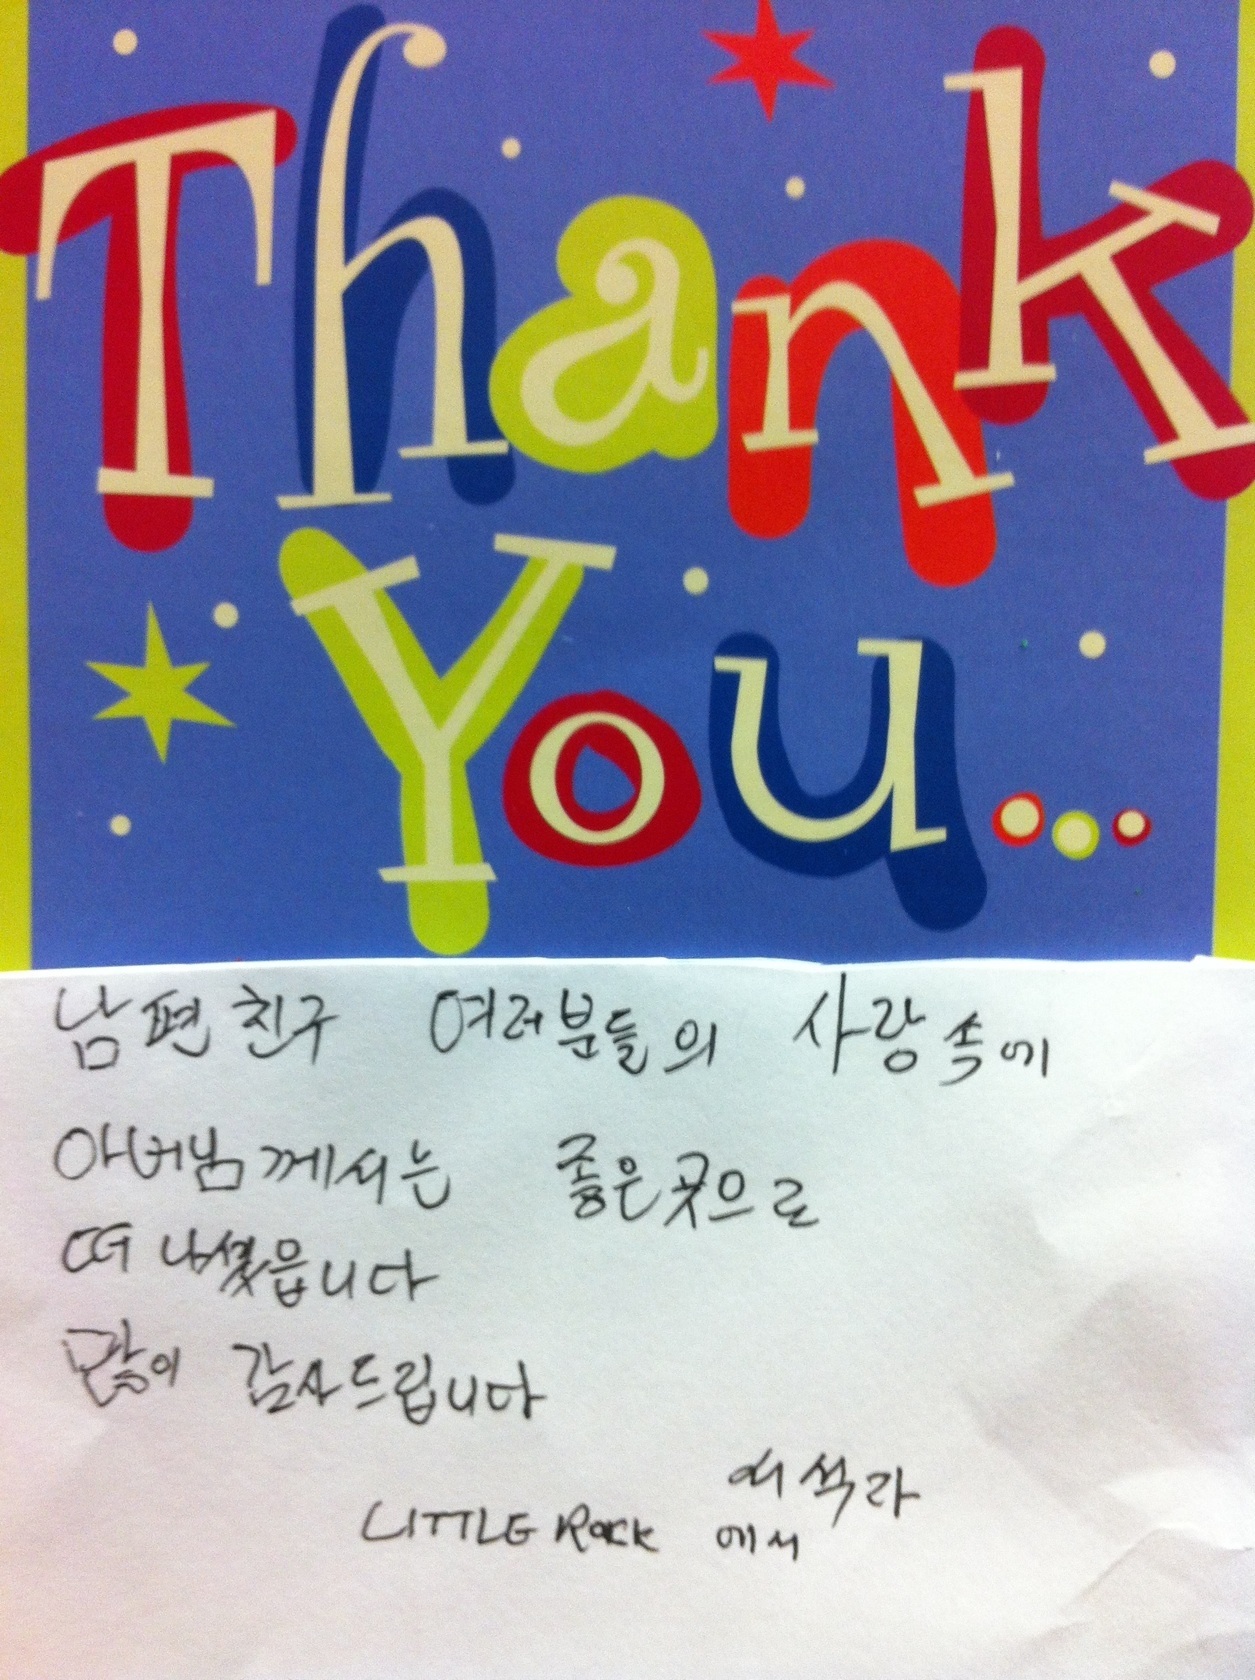 Thank
You...
남편친구 여러분들의 사랑속에
아버님께서는 좋은곳으로
떠나셨읍니다
많이 감사드립니다
LITTLE ROCK 에서